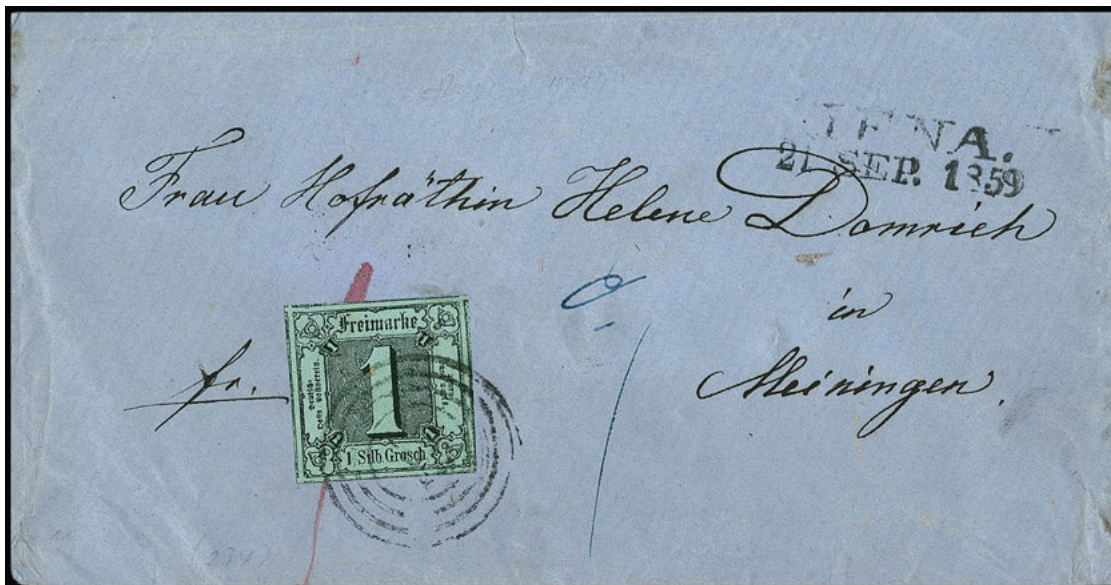 IENA.
21 SEP. 1859
Frau Hofräthin Helene Domrich
in
Meiningen.
fr.
Freimarke
1
1 Silb. Grosch